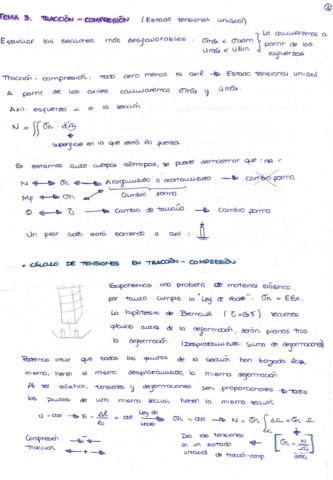 TEMA 3. TRACCIÓN - COMPRESIÓN (Estado tensional uniaxial)
Estudiar las secciones más desfavorables:
Lo calcularemos a
partir de los
esfuerzos
Tracción-compresión: todo cero menos el axil → Estado tensional uniaxil
A partir de los axiles calcularemos σmáx y umáx.
Axil: esfuerzo ⊥ a la sección
N = ∬ σn · dΩ
superficie en la que está la fuerza
Si estamos ante cuerpos isótropos, se puede demostrar que:
N ↔ σn ↔ Alargamiento o acortamiento → cambio forma
Mf ↔ σn
Cambio forma
↔ τ ↔ Cambio de tamaño → cambio forma
Un pilar solo está sometido a axil:
• CÁLCULO DE TENSIONES EN TRACCIÓN - COMPRESIÓN
Suponemos una probeta de material elástico,
por tanto cumple la "Ley de Hooke": σn = EEx.
La hipótesis de Bernoulli (τ=Gγ) secciones
planas antes de la deformación, serán planas tras
la deformación. (Desplazamiento: suma de deformaciones)
Podemos intuir que todos los puntos de la sección han bajado lo
mismo, tienen el mismo desplazamiento, la misma deformación
Al ser elástico, tensiones y deformaciones son proporcionales → todos
los puntos de una misma sección tienen la misma sección
Ley de
Hooke
Compresión → ←
Tracción ← + →
Da las tensiones
en un estado
uniaxial de tracción-comp.